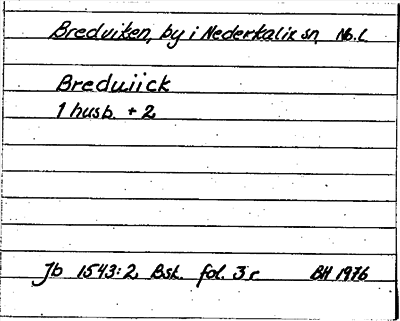 Bredviken, by i Nederkalix sn, Nb.l.
Breduiick
1 husb. + 2
Jb 1543:2, Bsk. fol. 3 r. BH 1976